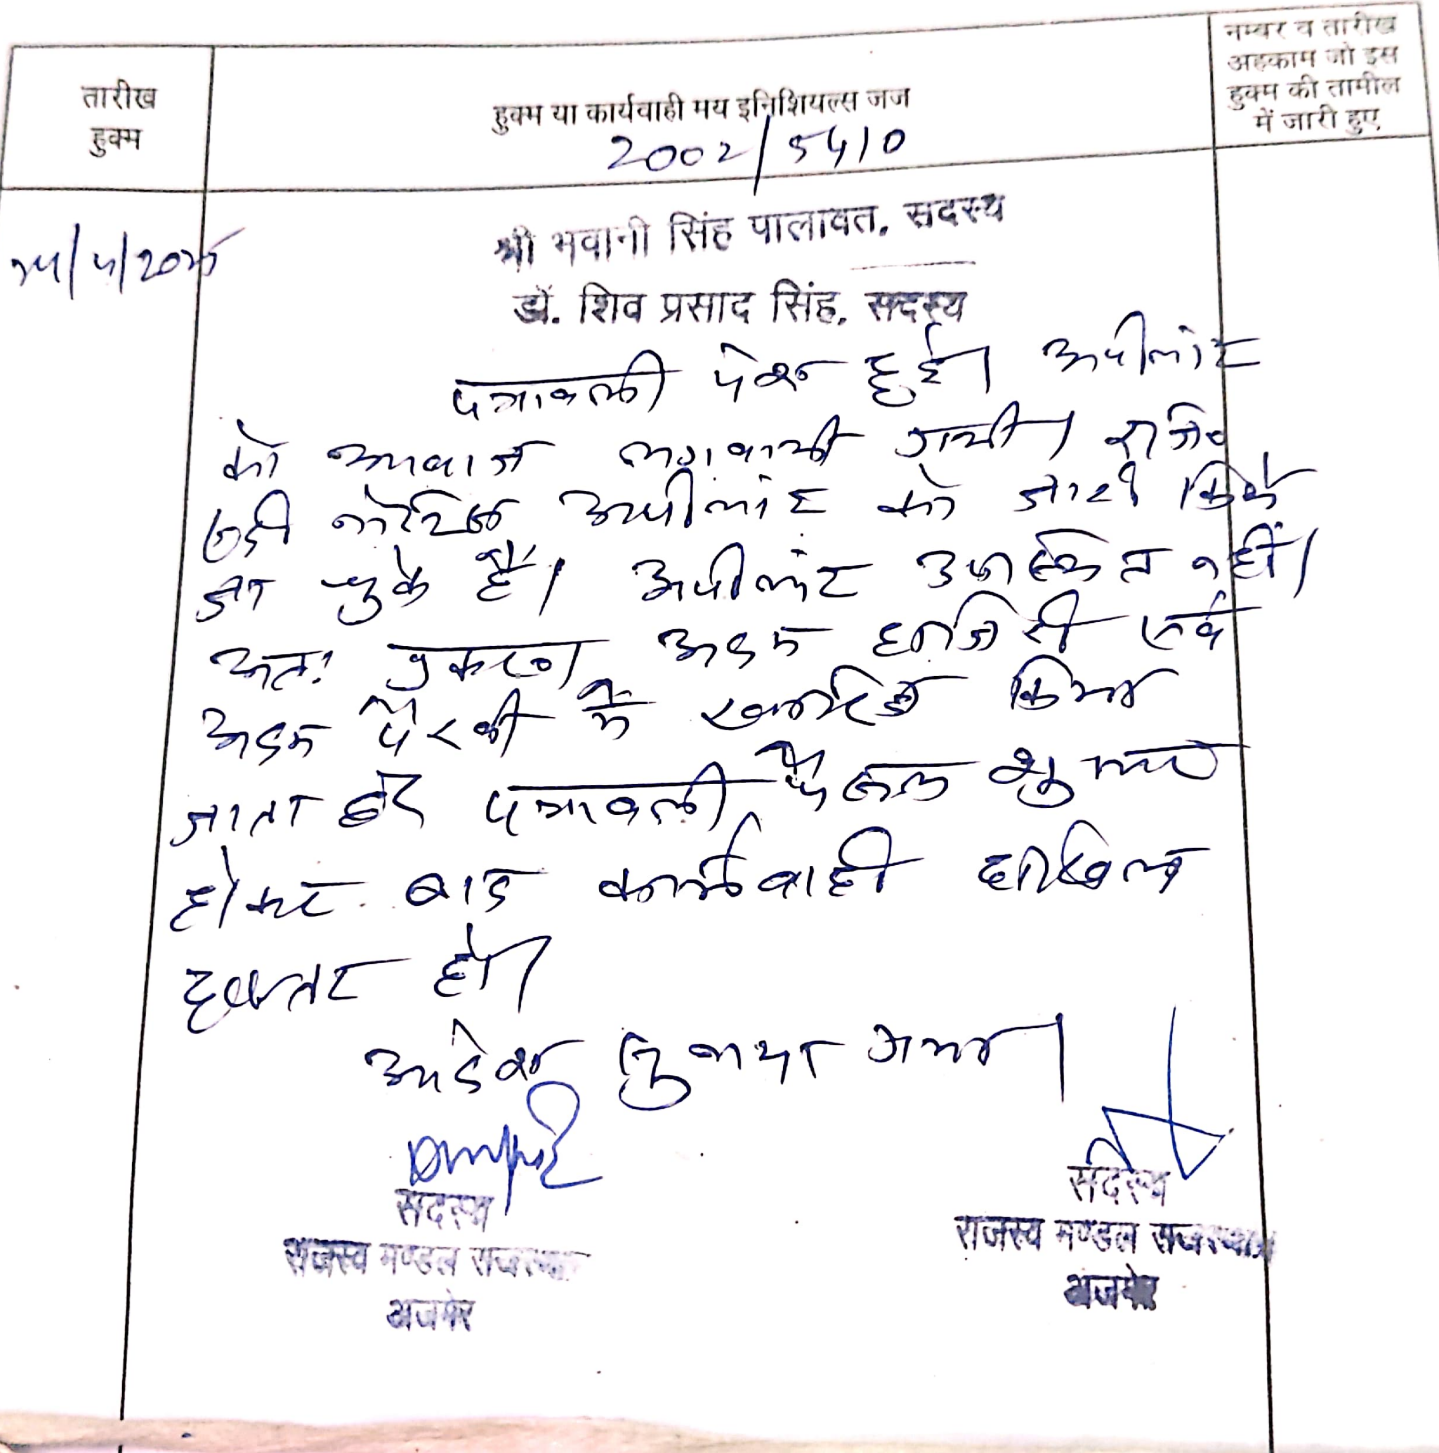 तारीख
हुक्म
हुक्म या कार्यवाही मय इनिशियल्स जज
नम्बर व तारीख
अहकाम जो इस
हुक्म की तामील
में जारी हुए
2002/5410
श्री भवानी सिंह पालावत, सदस्य
डॉ. शिव प्रसाद सिंह, सदस्य
पत्रावली पेश हुई। अपीलांट
को आवाज लगवायी गयी।
नोटिस अपीलांट को जारी किये
जा चुके हैं। अपीलांट उपस्थित नहीं।
अतः प्रकरण अदम हाजिरी एवं
अदम पैरवी में खारिज किया
जाता है। पत्रावली फैसल शुमार
होकर बाद कार्यवाही दाखिल
दफ्तर हो।
आदेश सुनाया गया।
सदस्य
राजस्व मण्डल राजस्थान
अजमेर
सदस्य
राजस्व मण्डल राजस्थान
अजमेर